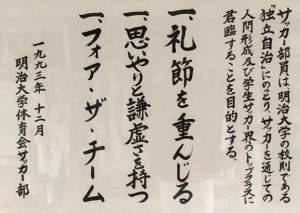 サッカー部員は、明治大学の校則である
『独立自治』にのっとり、サッカーを通じての
人間形成及び学生サッカー界のトップクラスに
君臨することを目的とする。
一、礼節を重んじる
一、思いやりと謙虚さを持つ
一、フォア・ザ・チーム
一九九三年 十二月
明治大学体育会サッカー部